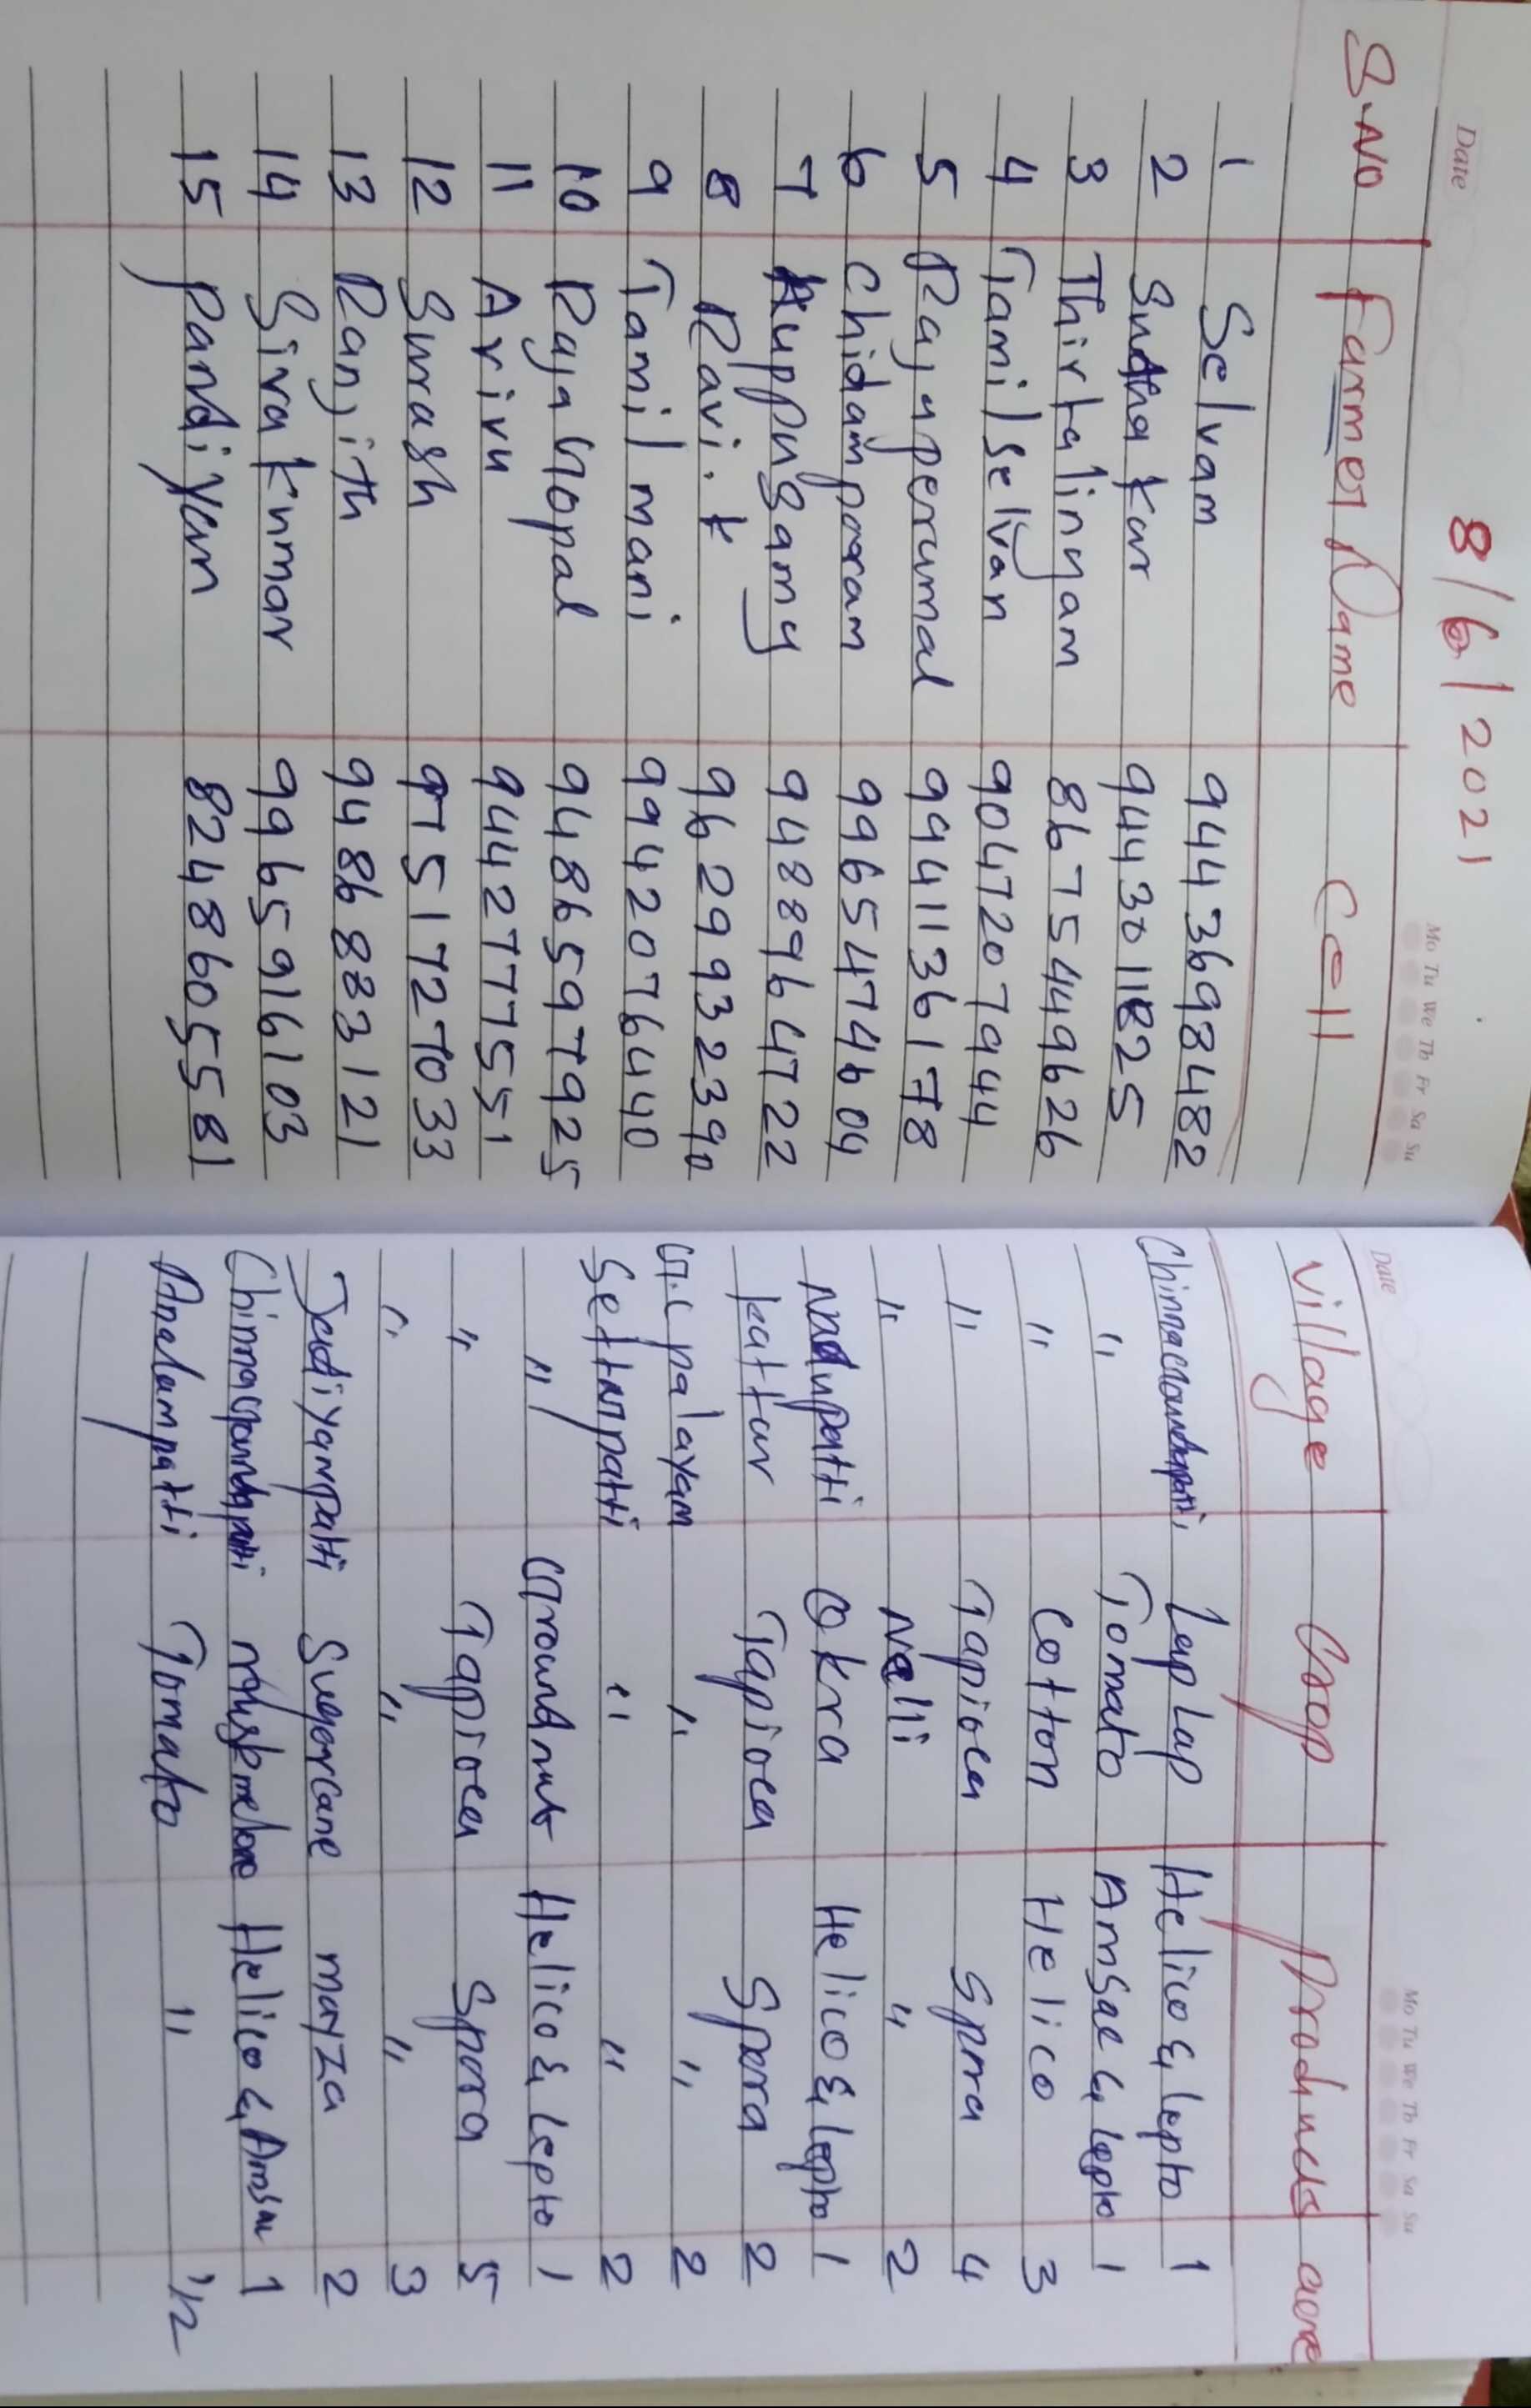 Date 8/6/2021 Mo Tu We Th Fr Sa Su Date Mo Tu We Th Fr Sa Su
S.No Farmer Name Cell Village Crop Products acre
1 Selvam 9443698482 Chinnacroundapatti Lap Lap Helico & lepto 1
2 Sudha kar 9443011825 " Tomato Amsac & lepto 1
3 Thirtalingam 8675449626 " Cotton Helico 3
4 Tamil selvan 9047207944 " Tapioca Spra 4
5 Rajuperumal 9941136178 " Nelli " 2
6 Chidamparam 9965474604 Nadupatti Okra Helico & lepto 1
7 Kuppusamy 9488964722 kattur Tapioca Spora 2
8 Ravi.k 9629932390 G.C palayam " " 2
9 Tamil mani 9942076440 Settripatti " " 2
10 Raja Gopal 9486597925 " Groundnut Helico & Lepto 1
11 Arivu 9442777551 " Tapioca Spora 5
12 Surash 9751727033 " " " 3
13 Ranjith 9486883121 Jadiyampatti Sugarcane mayza 2
14 Siva kumar 9965916103 muskmelone Helico & Amsac 1
15 Pandiyan 8248605581 Analampatti Tomato " 1/2